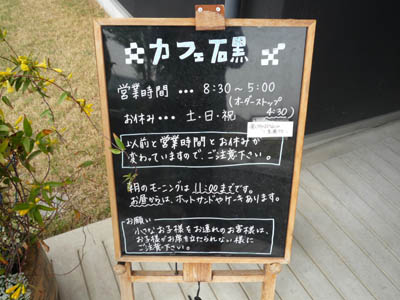 カフェ石黒
営業時間 ••• 8:30～5:00
(オーダーストップ
4:30)
お休み ••• 土・日・祝
以前と営業時間とお休みが
変わっていますので、ご注意下さい。
朝のモーニングは 11:00までです。
お昼からは、ホットサンドやケーキあります。
お願い
小さなお子様をお連れのお客様は、
お子様がお席を立たられない様に
ご注意下さい。